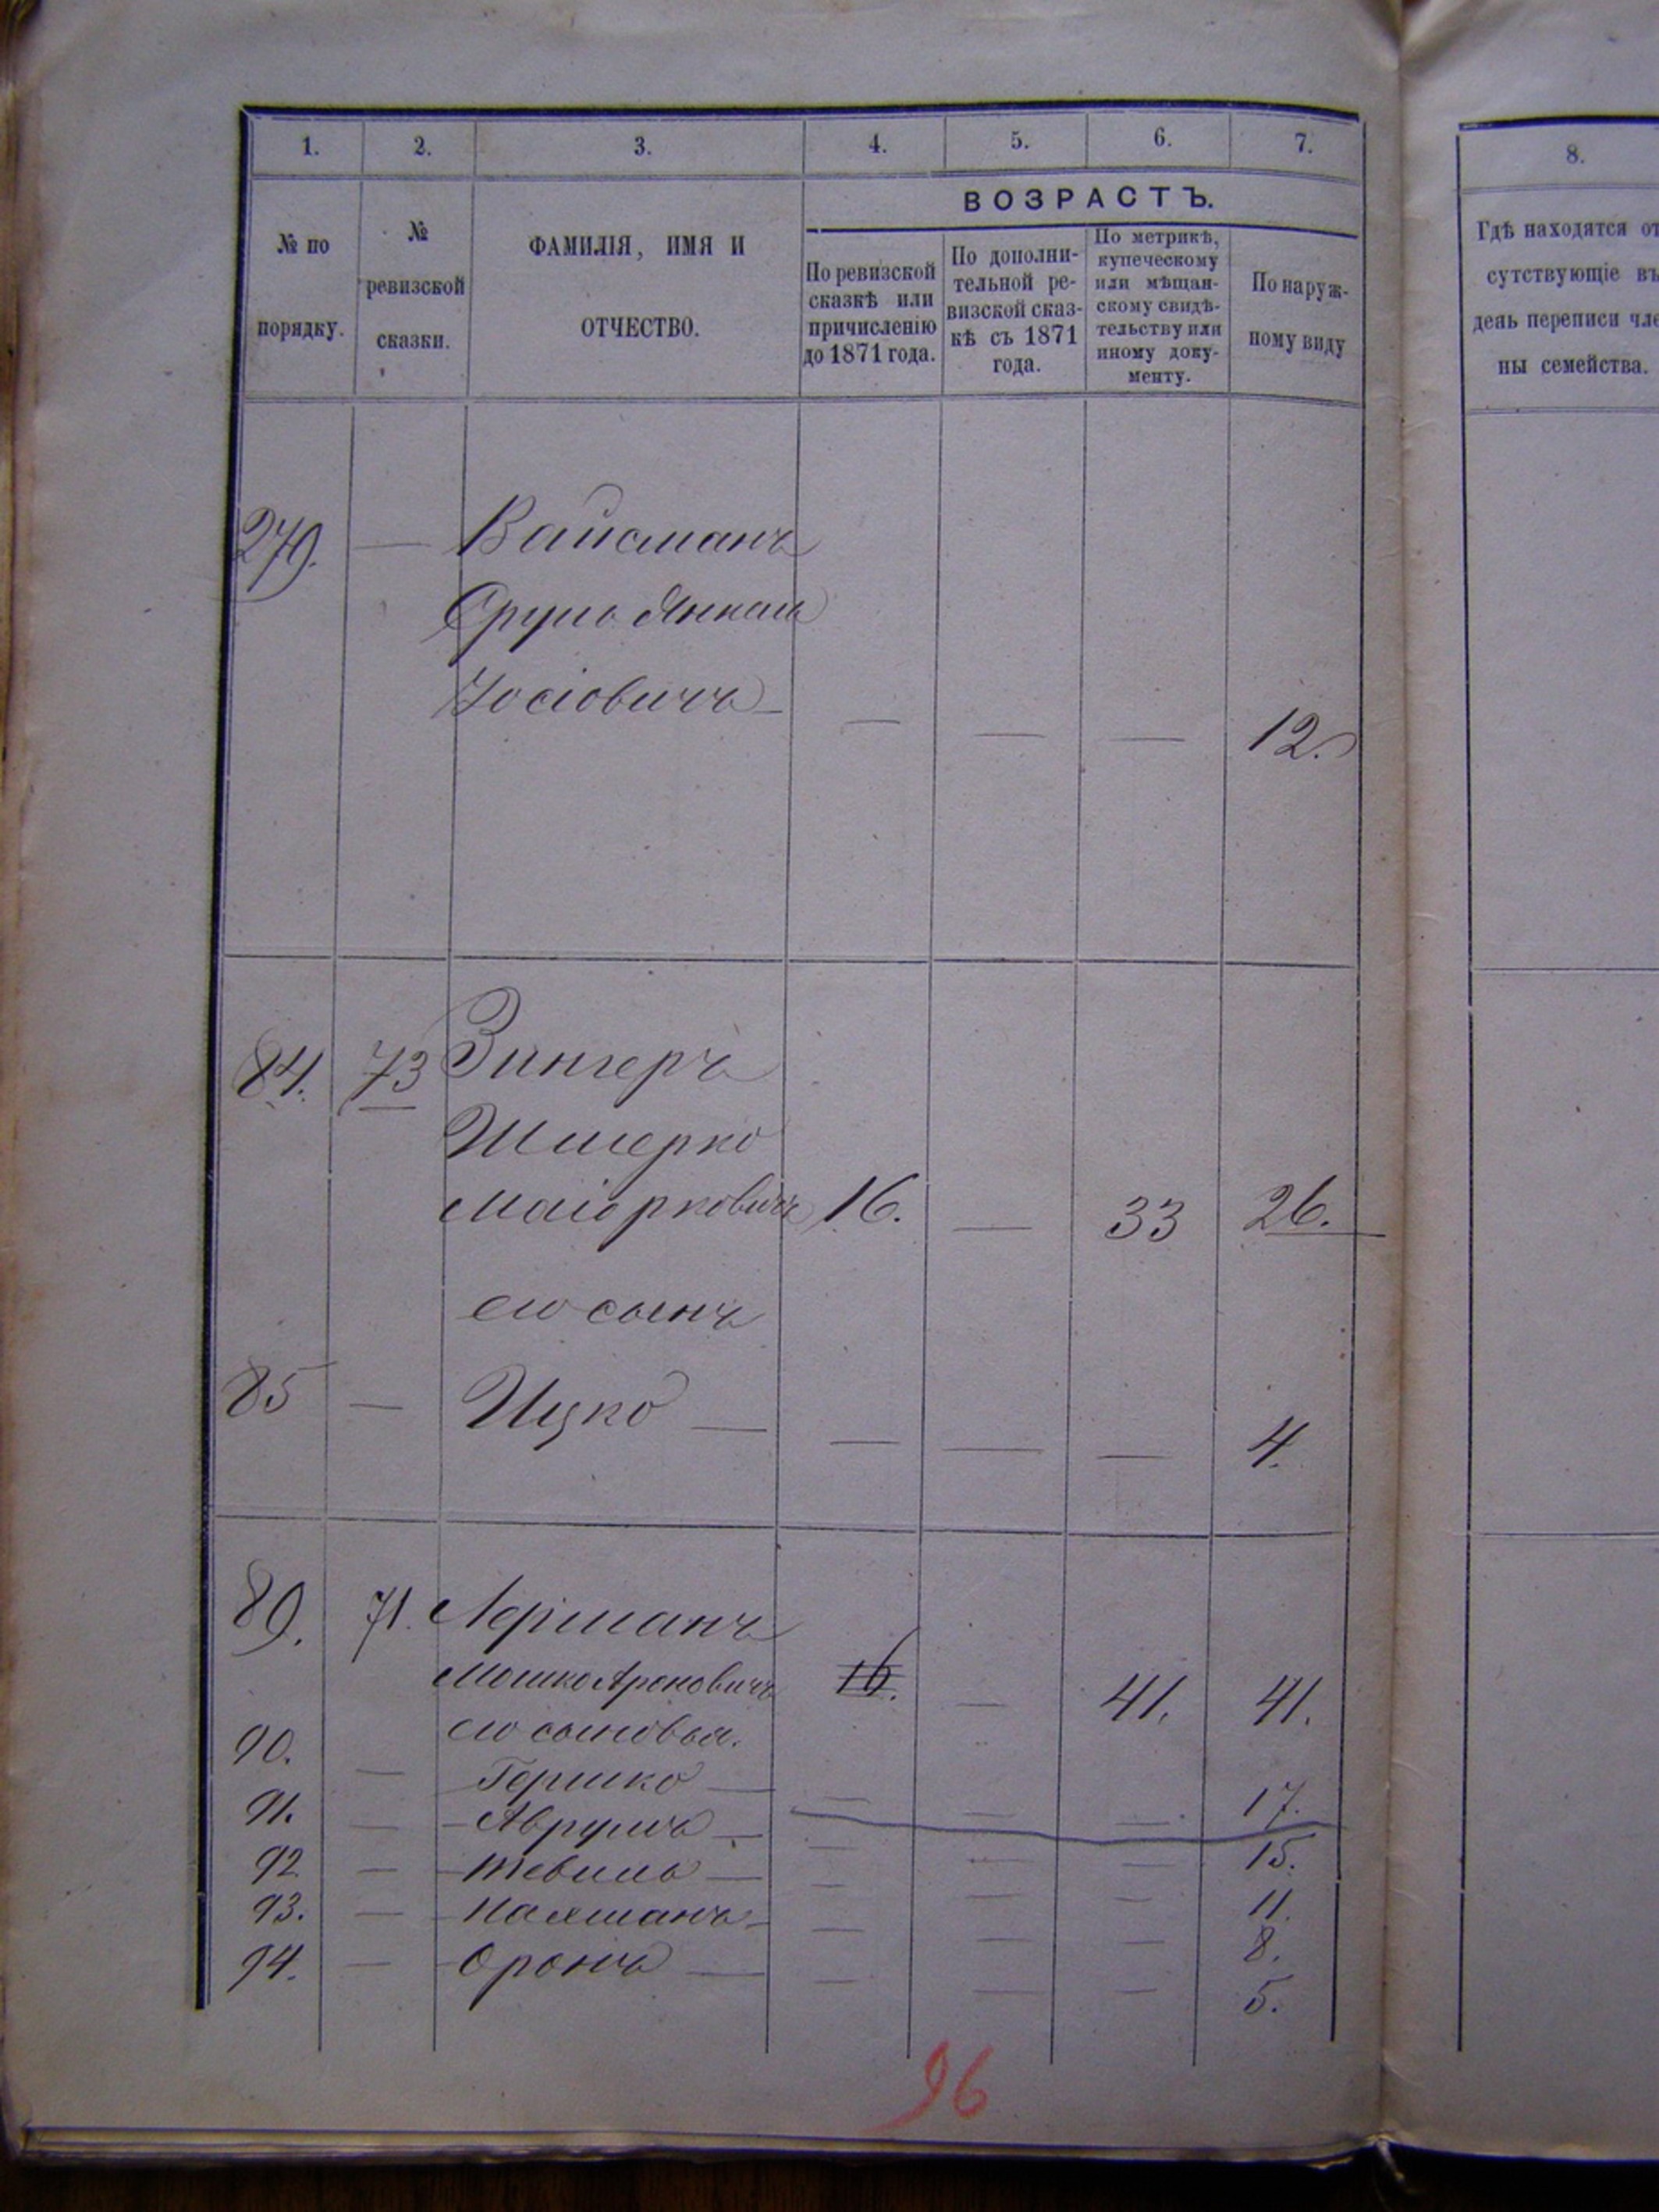 1. 2. 3. 4. 5. 6. 7. 8.
№ по порядку.
№ ревизской сказки.
ФАМИЛІЯ, ИМЯ И ОТЧЕСТВО.
ВОЗРАСТЪ.
По ревизской сказкѣ или причисленію до 1871 года.
По дополнительной ревизской сказкѣ съ 1871 года.
По метрикѣ, купеческому или мѣщанскому свидѣтельству или иному документу.
По наружному виду
Гдѣ находятся от
сутствующіе въ
день переписи чле
ны семейства.
279. — Вайсманъ
Сруль Янкель
Іосіовичъ — — — — 12.
84. 73 Зингеръ
Шмерко
Маіорковичъ 16. — 33 26.
его сынъ
85 — Ицко — — — — 4.
89. 71. Лерманъ
Мошко Ароновичъ 16. — 41. 41.
его сыновья.
90. — Гершко — — — — 17.
91. — Аврумъ — — — — 15.
92 — Тевель — — — — 11.
93. — Нахманъ — — — — 8.
94. — Оронъ — — — — 5.
96